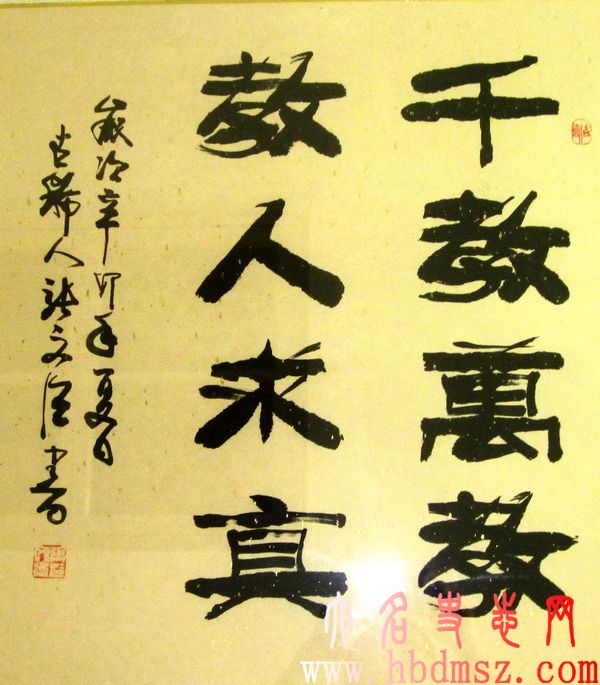 千教萬教
教人求真
歲次辛卯年夏日
古稀人張文潭書
大名史志网
www.hbdmsz.com